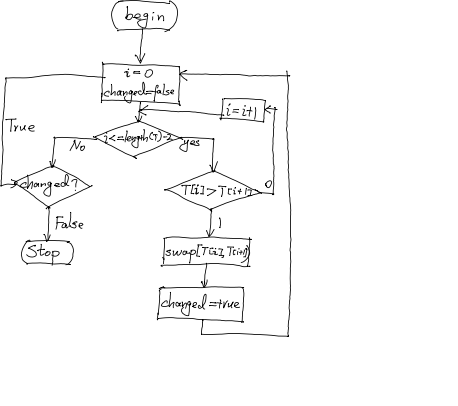 begin
i=0
changed=false
i=i+1
True
i<=length(T)-2
No
yes
changed?
T[i]>T[i+1]
0
False
1
Stop
swap[T[i],T[i+1]]
changed=true